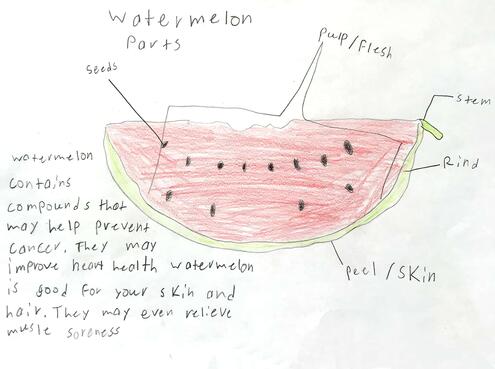 Watermelon
Parts
Seeds
Pulp/Flesh
Stem
Rind
Peel/Skin
watermelon
contains
compounds that
may help prevent
cancer. They may
improve heart health watermelon
is good for your skin and
hair. They may even relieve
musle soreness